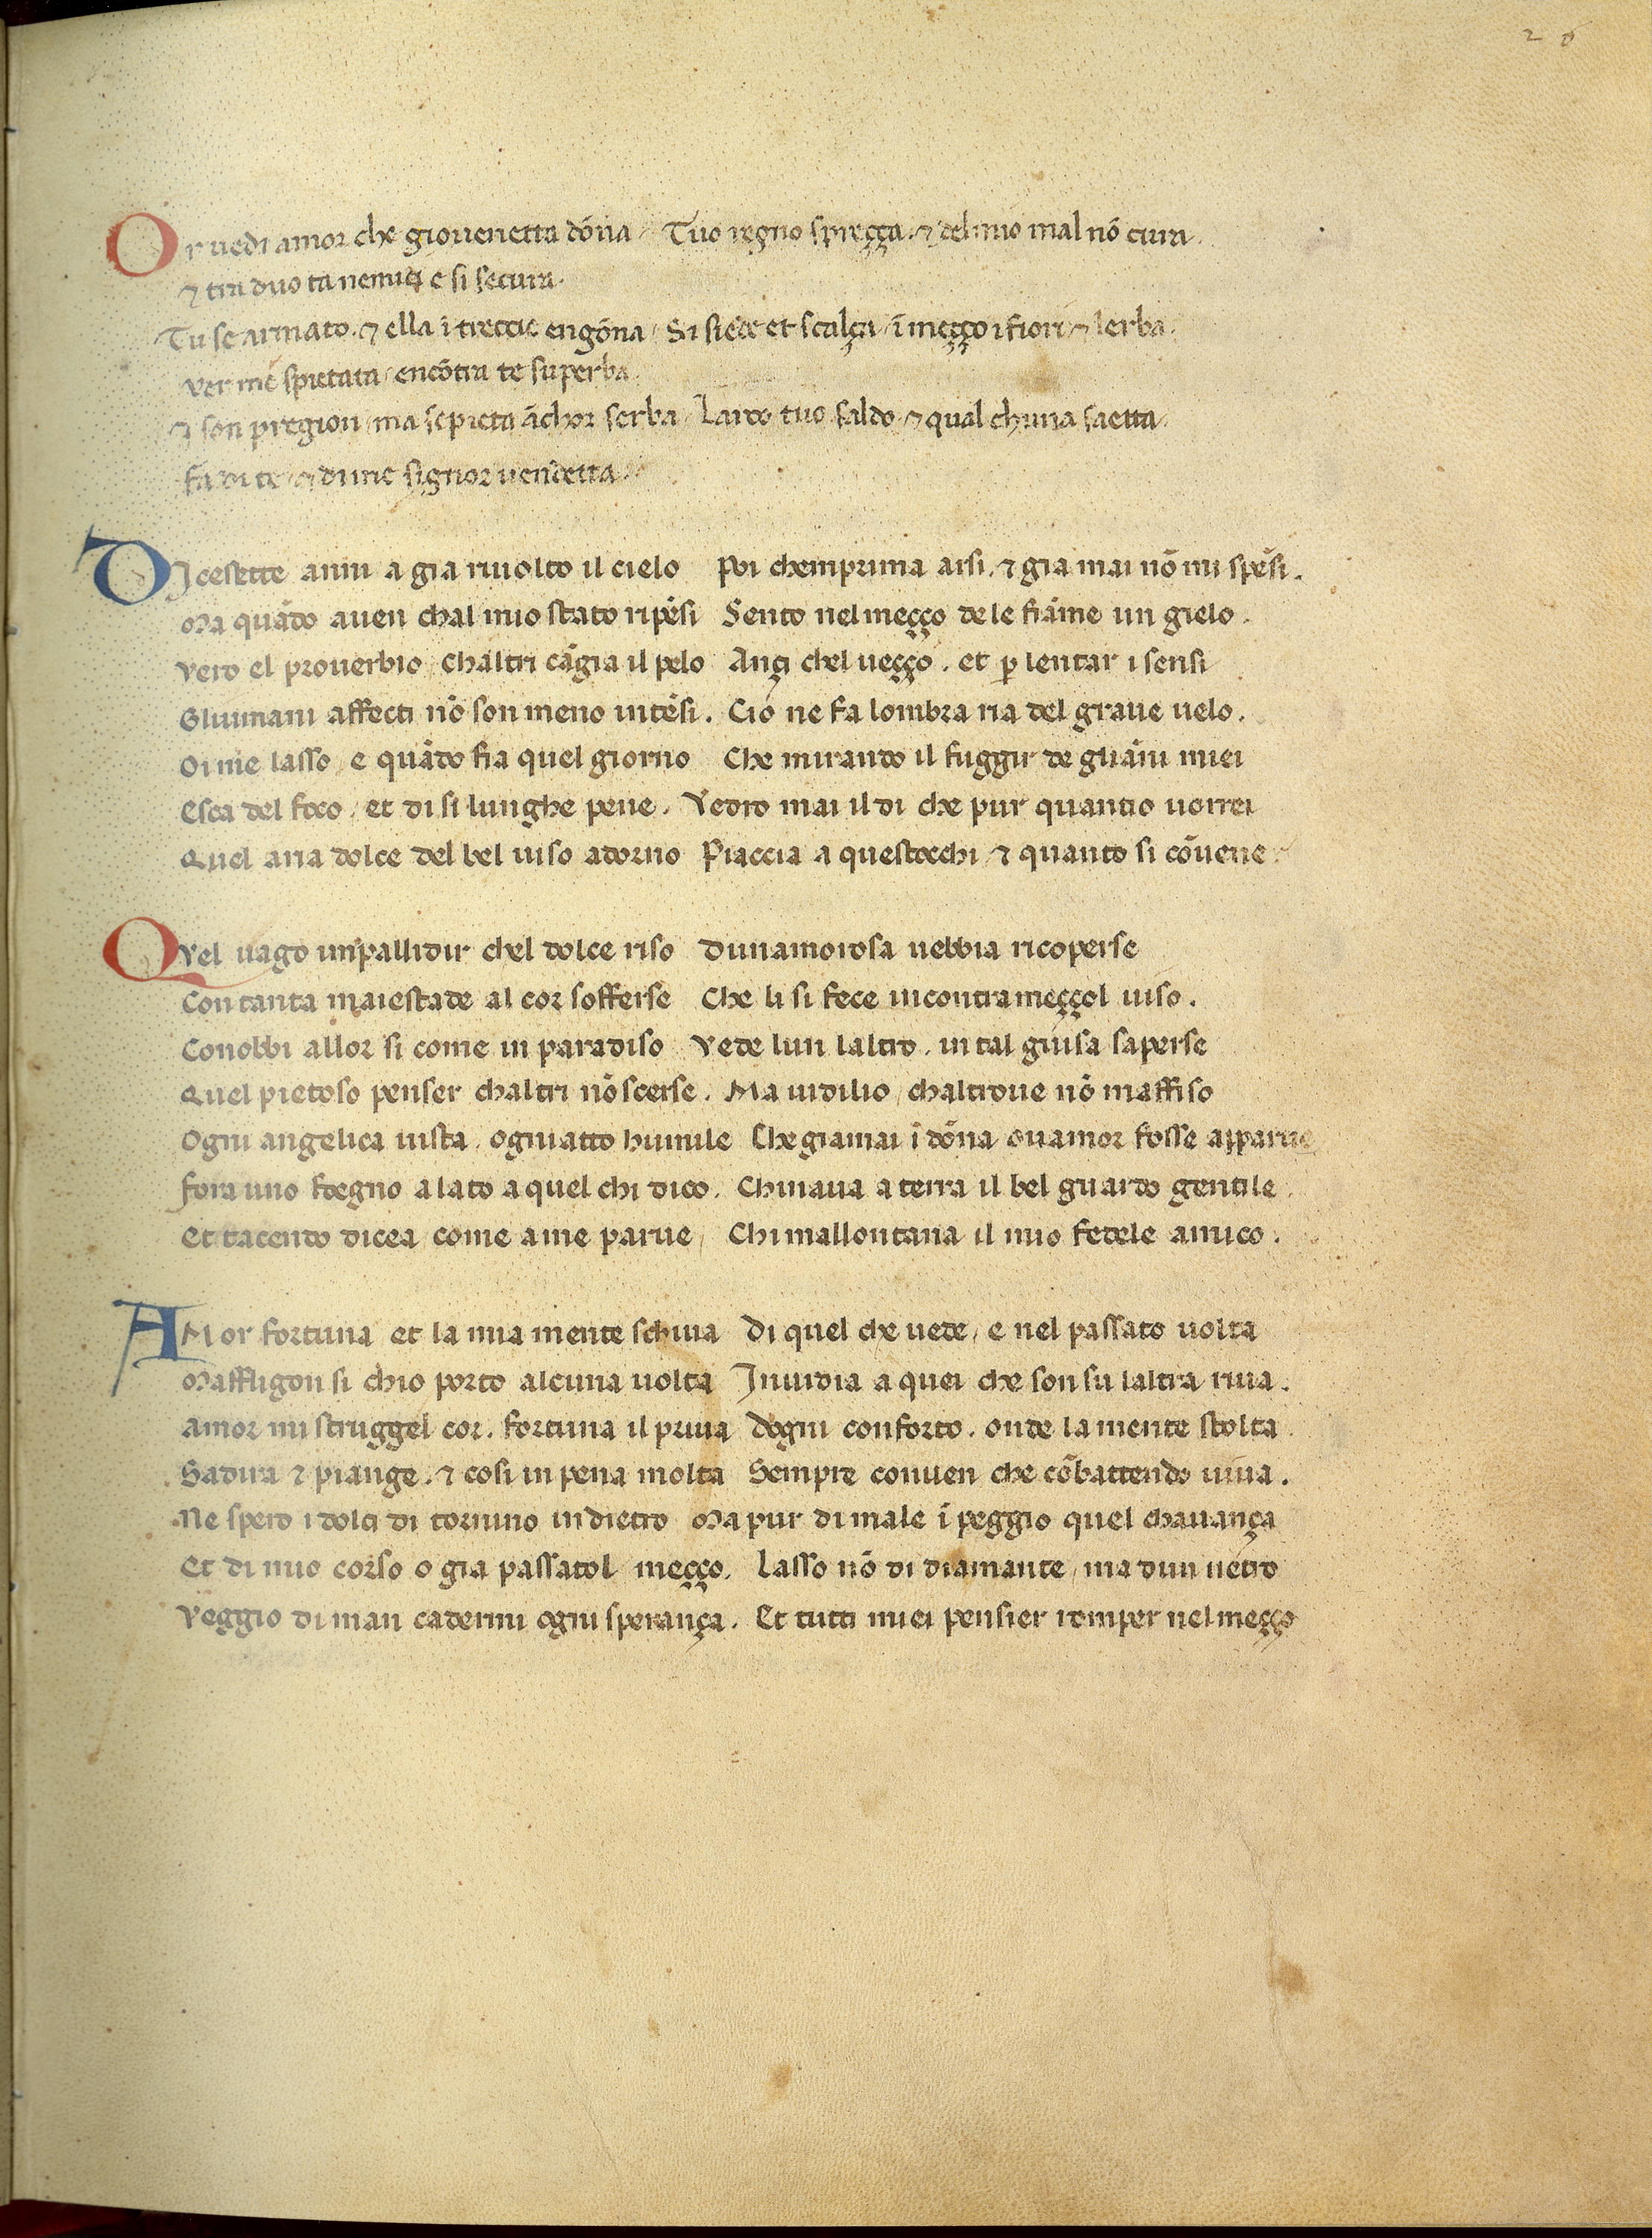 26
Or uedi amor che giouenetta dõna / Tuo regno spreçça . ⁊ del mio mal nõ cura .
⁊ tra duo ta nemici e si secura .
Tu se armato . ⁊ ella ĩ treccie engõna / Si siede et scalça / ĩ meçço i fiori ⁊ lerba .
ver me spietata / encõtra te superba .
I son pregion / ma se pieta ãchor serba / Larco tuo saldo . ⁊ qual chuna saetta .
fa di te ⁊ di me signor uendetta .
DIcesette anni a gia riuolto il cielo Poi chemprima arsi . ⁊ gia mai nõ mi spẽsi .
Ma quãdo auen chal mio stato ripẽsi Sento nel meçço de le fiãme un gielo .
Vero el prouerbio / chaltri cãgia il pelo Ançi chel ueçço . et ꝑ lentar i sensi
Gliumani affecti nõ son meno intẽsi . Cio ne fa lombra ria del graue uelo .
Oi me lasso / e quãdo fia quel giorno Che mirando il fuggir de gliãni miei
Esca del foco / et di si lunghe pene . Vedro mai il di che pur quantio uorrei
Quel aria dolce del bel uiso adorno Piaccia a questocchi / ⁊ quanto si cõuene
QVel uago impallidir chel dolce riso Dunamorosa nebbia ricoperse
Con tanta maiestade al cor sofferse Che li si fece incontra meççol uiso .
Conobbi allor si come in paradiso Vede lun laltro . in tal guisa saperse
Quel pietoso penser chaltri nõ scerse . Ma uidilio / chaltroue nõ maffiso
Ogni angelica uista . ogniatto humile Che giamai ĩ dõna ouamor fosse apparue
fora uno sdegno a lato a quel chi dico . Chinaua a terra il bel guardo gentile .
Et tacendo dicea come a me parue / Chi mallontana il mio fedele amico .
AMor fortuna et la mia mente schiua Di quel che uede / e nel passato uolta
Maffligon si chio porto alcuna uolta Inuidia a quei che son su laltra riua .
Amor mi struggel cor . fortuna il priua Dogni conforto . onde la mente stolta
Sadira ⁊ piange . ⁊ cosi in pena molta Sempre conuen che cõbattendo uiua .
Ne spero i dolci di tornino indietro Ma pur di male ĩ peggio quel chauança
Et di mio corso o gia passatol meçço . Lasso nõ di diamante / ma dun uetro
Veggio di man cadermi ogni sperança . Et tutti miei pensier romper nel meçço